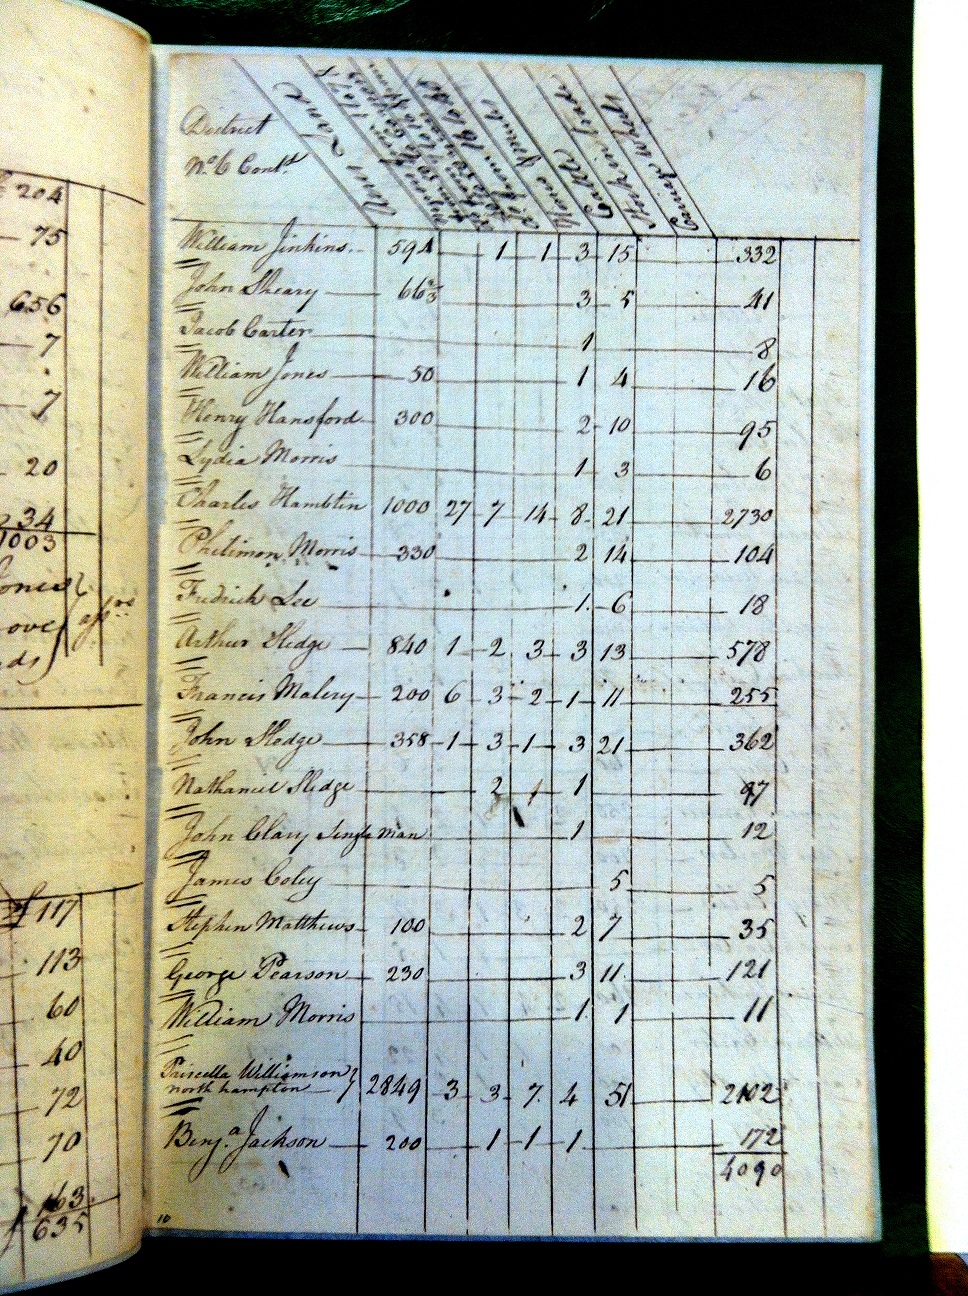 204
75
656
7
7
20
34
1003
117
113
60
40
72
70
163
635
District
No. 6 Contd.
Acres Land
Horses
Cattle
Stock in trade
William Jinkins 594 1 1 3 15 332
John Sheary 66 2/3 3 5 41
Jacob Carter 1 8
William Jones 50 1 4 16
Henry Hansford 300 2 10 95
Lydia Morris 1 3 6
Charles Hamblin 1000 27 7 14 8 21 2730
Philimon Morris 330 2 14 104
Fredrick Lee 1 6 18
Arthur Sledge 840 1 2 3 3 13 578
Francis Malery 200 6 3 2 1 11 255
John Sledge 358 1 3 1 3 21 362
Nathaniel Sledge 2 1 1 97
John Clary Single man 1 12
James Coley 5 5
Stephen Matthews 100 2 7 35
George Pearson 230 3 11 121
William Morris 1 1 11
Priscella Williamson
north hampton } 2849 3 3 7 4 51 2102
Benja. Jackson 200 1 1 1 172
4090
10